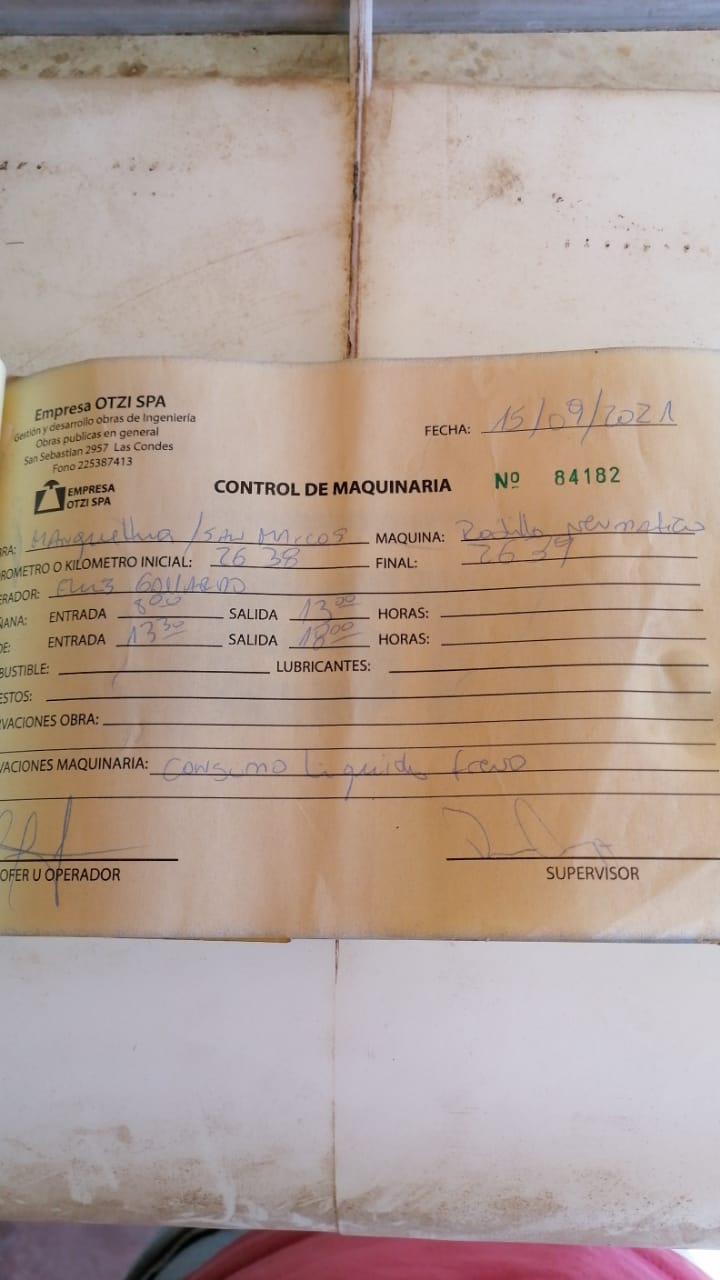 Empresa OTZI SPA
Gestión y desarrollo obras de Ingeniería
Obras publicas en general
San Sebastian 2957 Las Condes
Fono 225387413
EMPRESA
OTZI SPA
CONTROL DE MAQUINARIA Nº 84182
FECHA: 15/09/2021
RA: / San Marcos MAQUINA: Rodillo Neumatico
ROMETRO O KILOMETRO INICIAL: 2638 FINAL: 2639
RADOR: GALLARDO
ÑANA: ENTRADA 8:00 SALIDA 13:00 HORAS:
DE: ENTRADA 13:30 SALIDA 18:00 HORAS:
BUSTIBLE: LUBRICANTES:
ESTOS:
VACIONES OBRA:
VACIONES MAQUINARIA: Consumo Liquido freno
OFER U OPERADOR SUPERVISOR